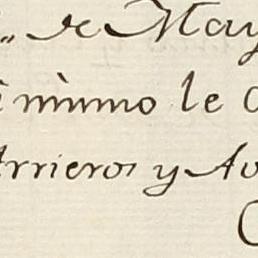 de May
mismo le
Arrieros y Av